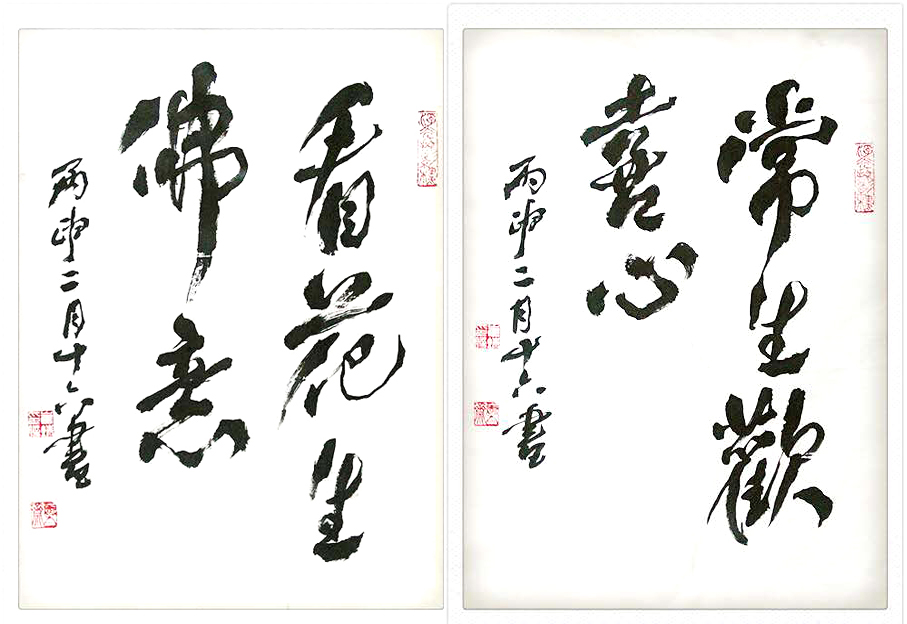 常生歡
喜心
丙申二月十六書
看花生
佛意
丙申二月十六書